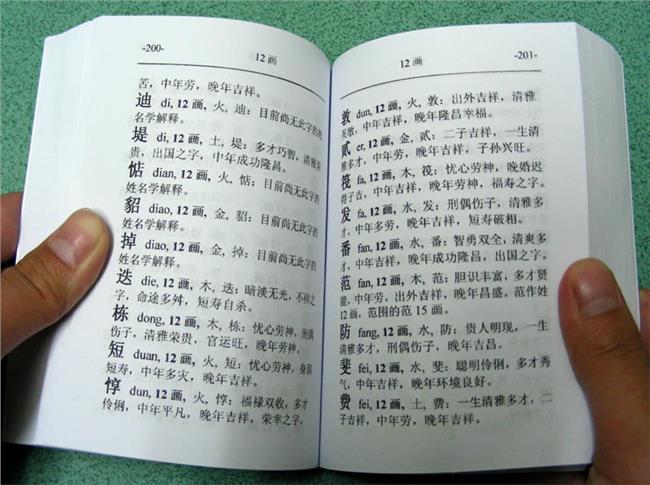 -200-
12画
苦，中年劳，晚年吉祥。
迪 di, 12画，火，迪：目前尚无此字的姓
名学解释。
堤 di, 12画，土，堤：多才巧智，清雅荣
贵，出国之字，中年成功隆昌。
惦 dian, 12画，火，惦：目前尚无此字的
姓名学解释。
貂 diao, 12画，金，貂：目前尚无此字的
姓名学解释。
掉 diao, 12画，金，掉：目前尚无此字的
姓名学解释。
迭 die, 12画，木，迭：暗淡无光，不祥之
字，命途多舛，短寿自杀。
栋 dong, 12画，木，栋：忧心劳神，刑偶
伤子，清雅荣贵，官运旺，晚年劳神。
短 duan, 12画，火，短：忧心劳神，身偶
短寿，中年多灾，晚年吉祥。
惇 dun, 12画，火，惇：福禄双收，多才
伶俐，中年平凡，晚年吉祥，荣幸之字，
12画
-201-
敦 dun, 12画，火，敦：出外吉祥，清雅
英敏，中年吉祥，晚年隆昌幸福。
贰 er, 12画，金，贰：二子吉祥，一生清
雅多才，中年劳，晚年吉祥，子孙兴旺。
筏 fa, 12画，木，筏：忧心劳神，晚婚迟
得子吉，中年吉祥，晚年劳神，福寿之字。
发 fa, 12画，水，发：刑偶伤子，清雅多
才，中年多劳，晚年吉祥，短寿破相。
番 fan, 12画，水，番：智勇双全，清爽多
才，中年吉祥，晚年成功隆昌，出国之字。
范 fan, 12画，木，范：胆识丰富，多才贤
能，中年劳，出外吉祥，晚年昌盛。范作姓
12画，范围的范15画。
防 fang, 12画，水，防：贵人明现，一生
清雅多才，刑偶伤子，晚年吉昌。
斐 fei, 12画，水，斐：聪明伶俐，多才秀
气，中年吉祥，晚年环境良好。
费 fei, 12画，土，费：一生清雅多才，二
子吉祥，中年劳，晚年吉祥。